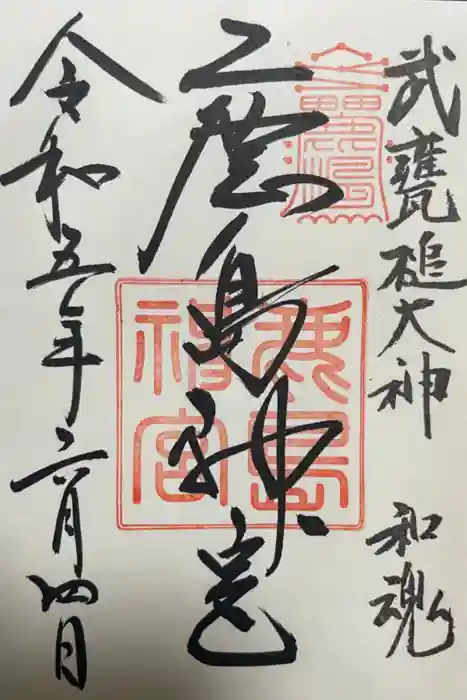 武甕槌大神 和魂
鹿島神宮
令和五年六月四日
鹿島
神宮